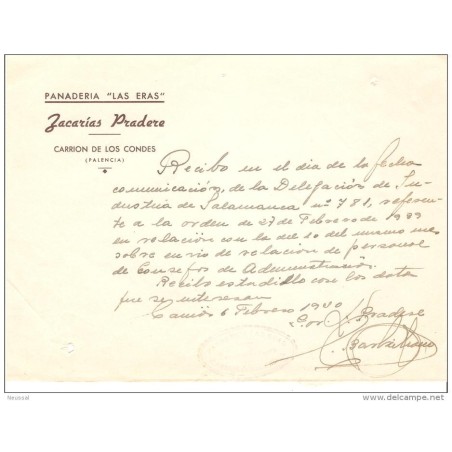 PANADERIA "LAS ERAS"
Zacarías Pradere
CARRION DE LOS CONDES
(PALENCIA)
Recibo en el dia de la fecha
comunicación, de la Delegación de In-
dustria de Salamanca nº 781, referen-
te a la orden de 27 de Febrero de 1939
en relación con la de 10 del mismo mes
sobre envio de relacion de personal
de Consejos de Administración.
Recibi estadillo con los datos
que se interesan
Carrión 6 Febrero 1940
Por Z. Pradere
Neussal
www.delcampe.net